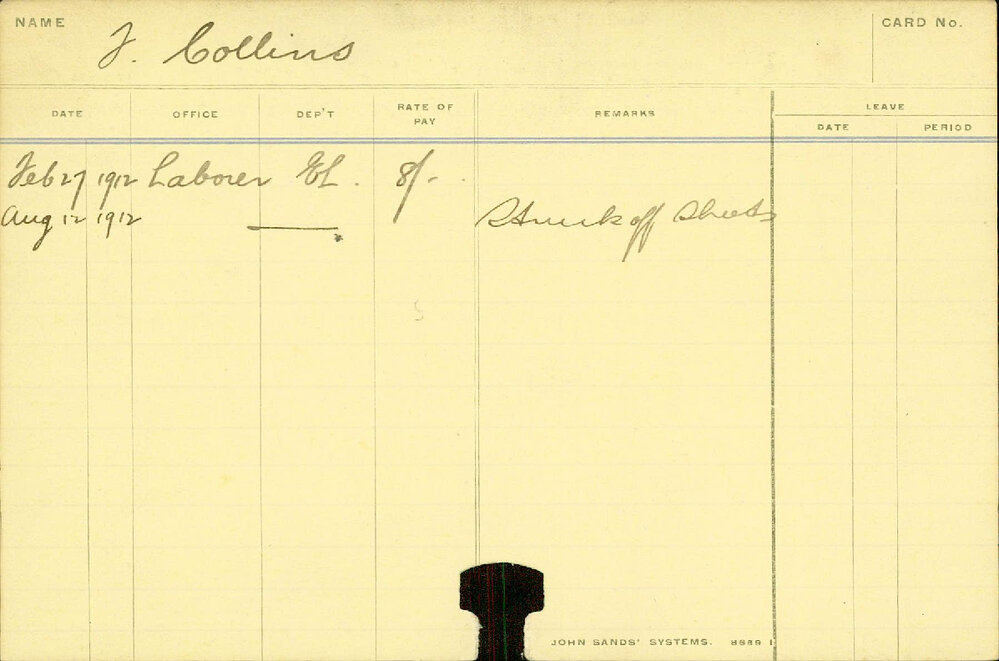 NAME
F. Collins
CARD No.
DATE OFFICE DEP'T RATE OF PAY REMARKS LEAVE
DATE PERIOD
Feb 27 1912 Laborer EL. 8/-
Aug 12 1912 Struck off Sheets
JOHN SANDS' SYSTEMS.